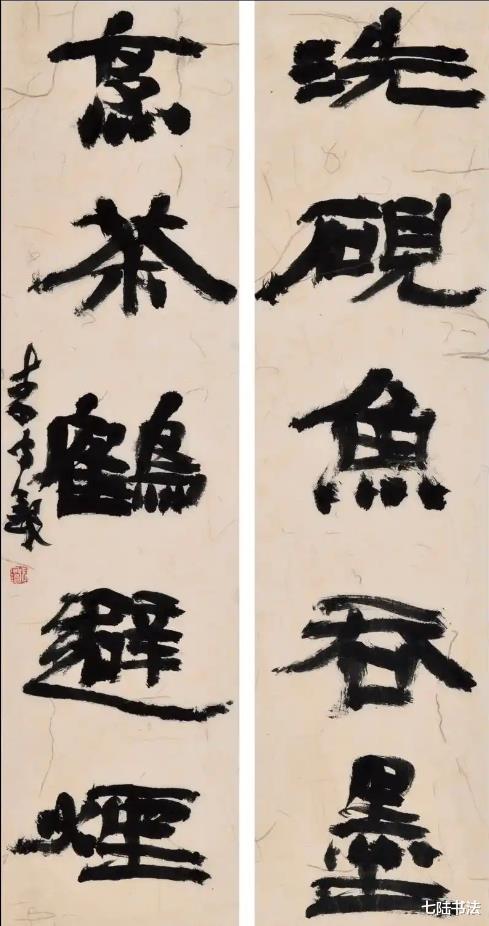 洗硯魚吞墨
烹茶鶴避煙
七陆书法